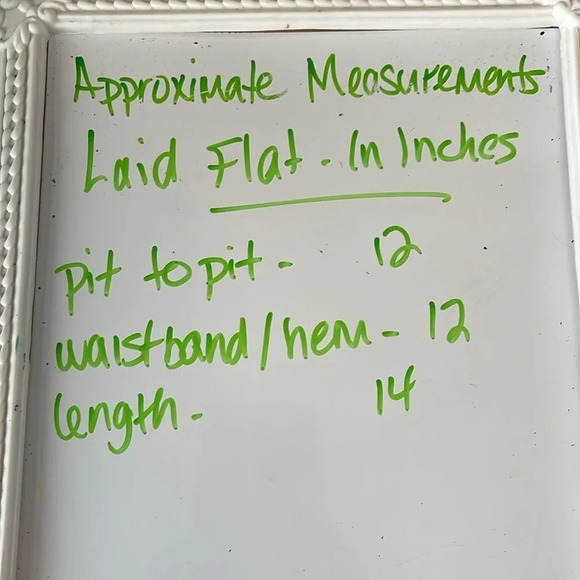 Approximate Measurements
Laid Flat - In Inches
pit to pit - 12
waistband/hem - 12
length - 14